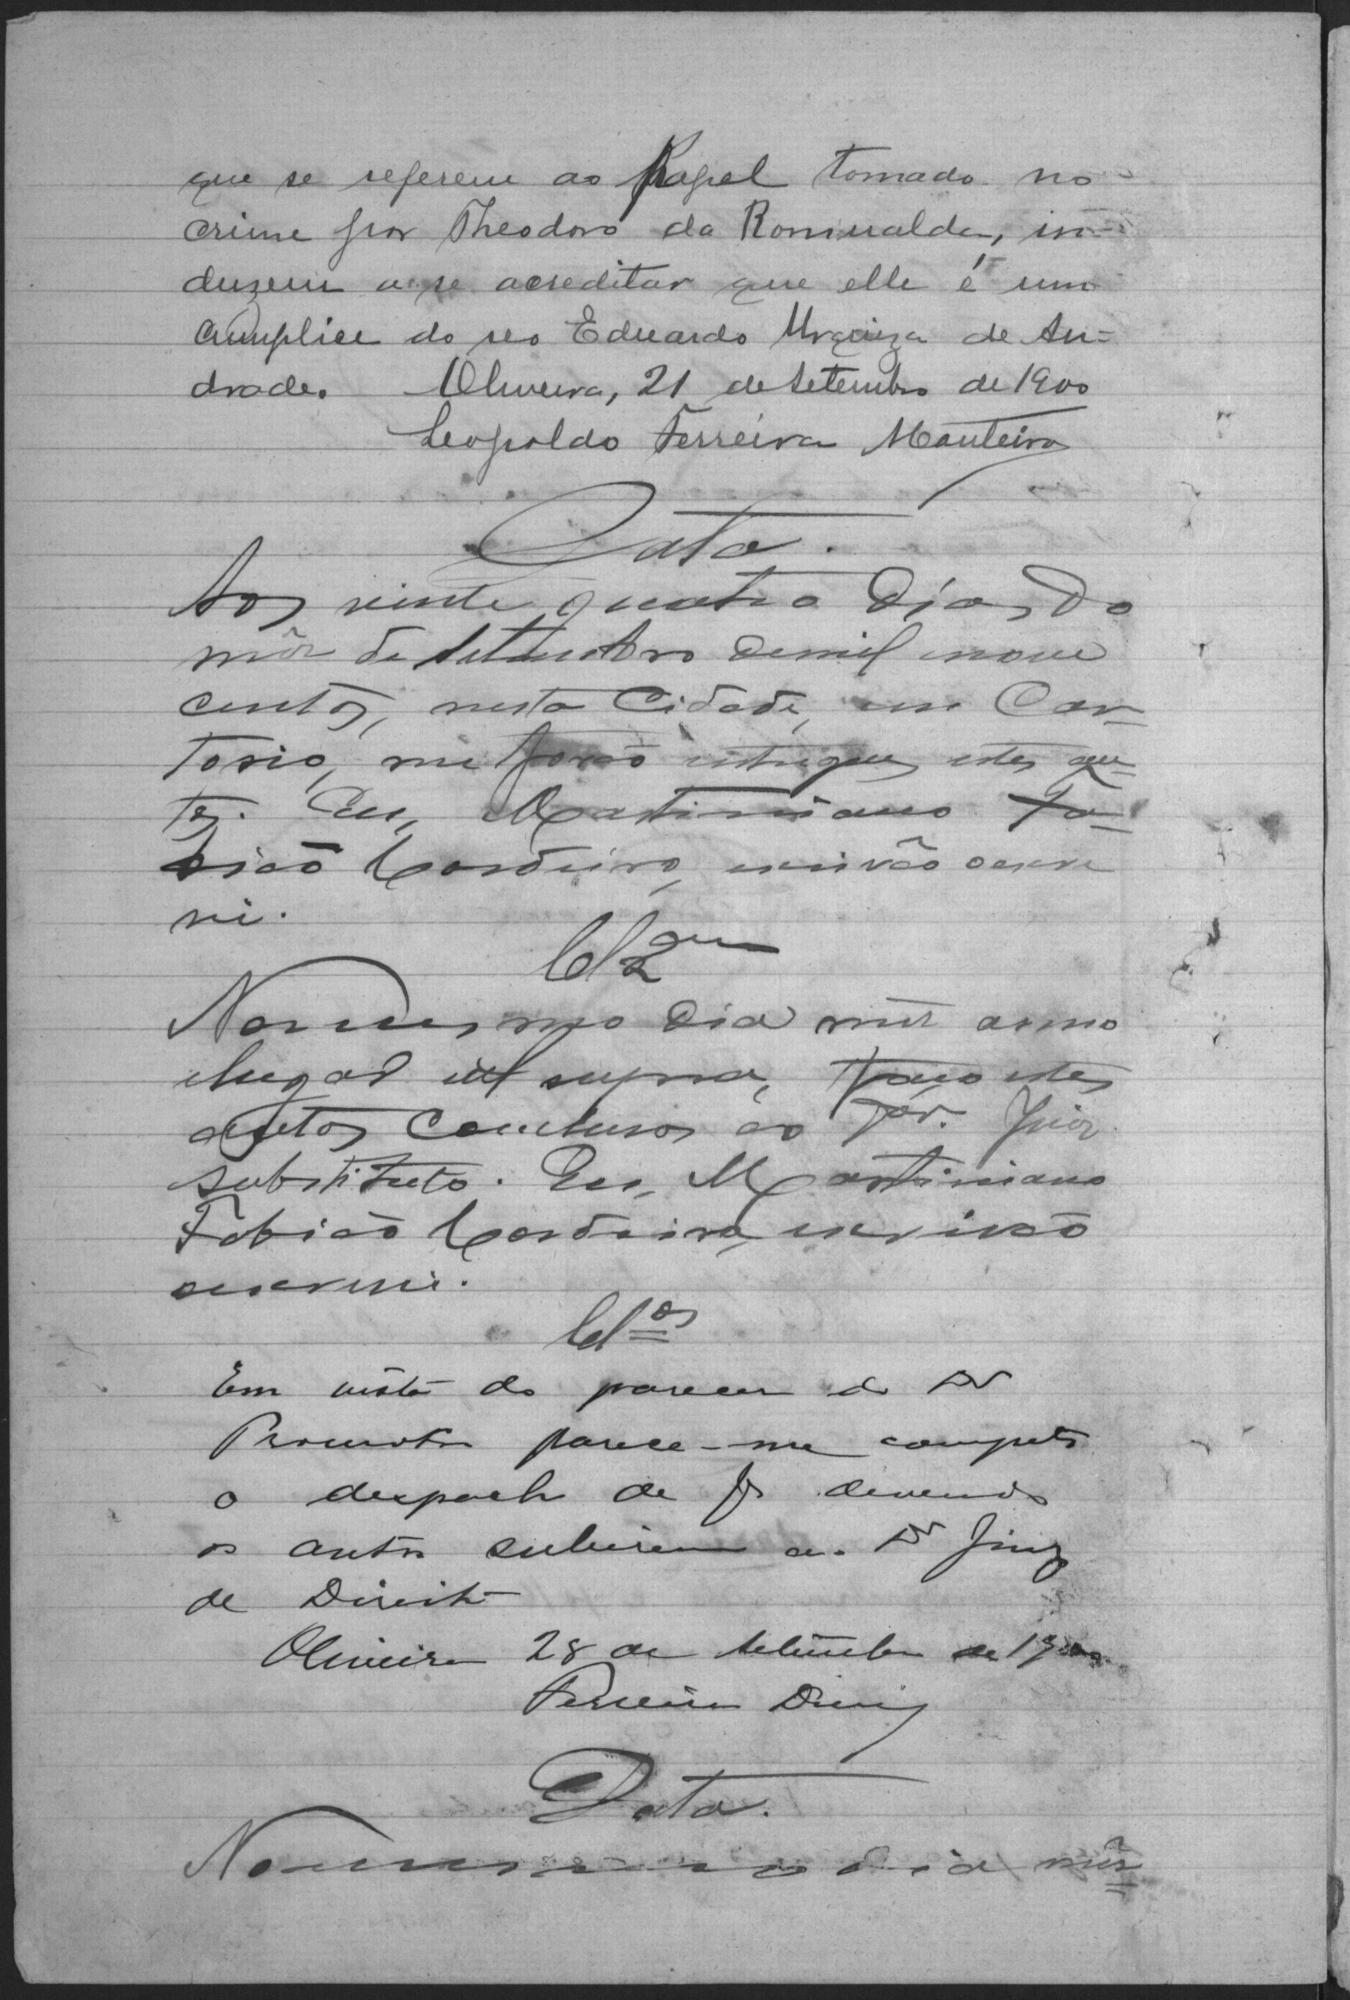 que se referem ao papel tomado no
crime por Theodoro da Romualda, in-
duzem a se acreditar que elle é um
cumplice do reo Eduardo Urquiza de An-
drade. Oliveira, 21 de Setembro de 1900
Leopoldo Ferreira Monteiro
Data.
Aos vinte quatro dias do
mês de Setembro de mil nove
centos, nesta Cidade, em Car-
torio, me forão entregues estes au-
tos. Eu, Martiniano Fa-
bião Cordeiro, escrivão oescre
vi.
Clzam
No mesmo dia mês anno
lugar ut supra, faço estes
autos conclusos ao Dor. Juiz
substituto. Eu, Martiniano
Fabião Cordeiro, escrivão
oescrevi.
Clos
Em vista do parecer do Dr
Promotor parece-me competir
o despacho de fs devendo
os autos subirem ao Dr Juiz
de Direito
Oliveira 28 de Setembro de 1900
Ferreira Diniz
Data.
No mesmo dia mês